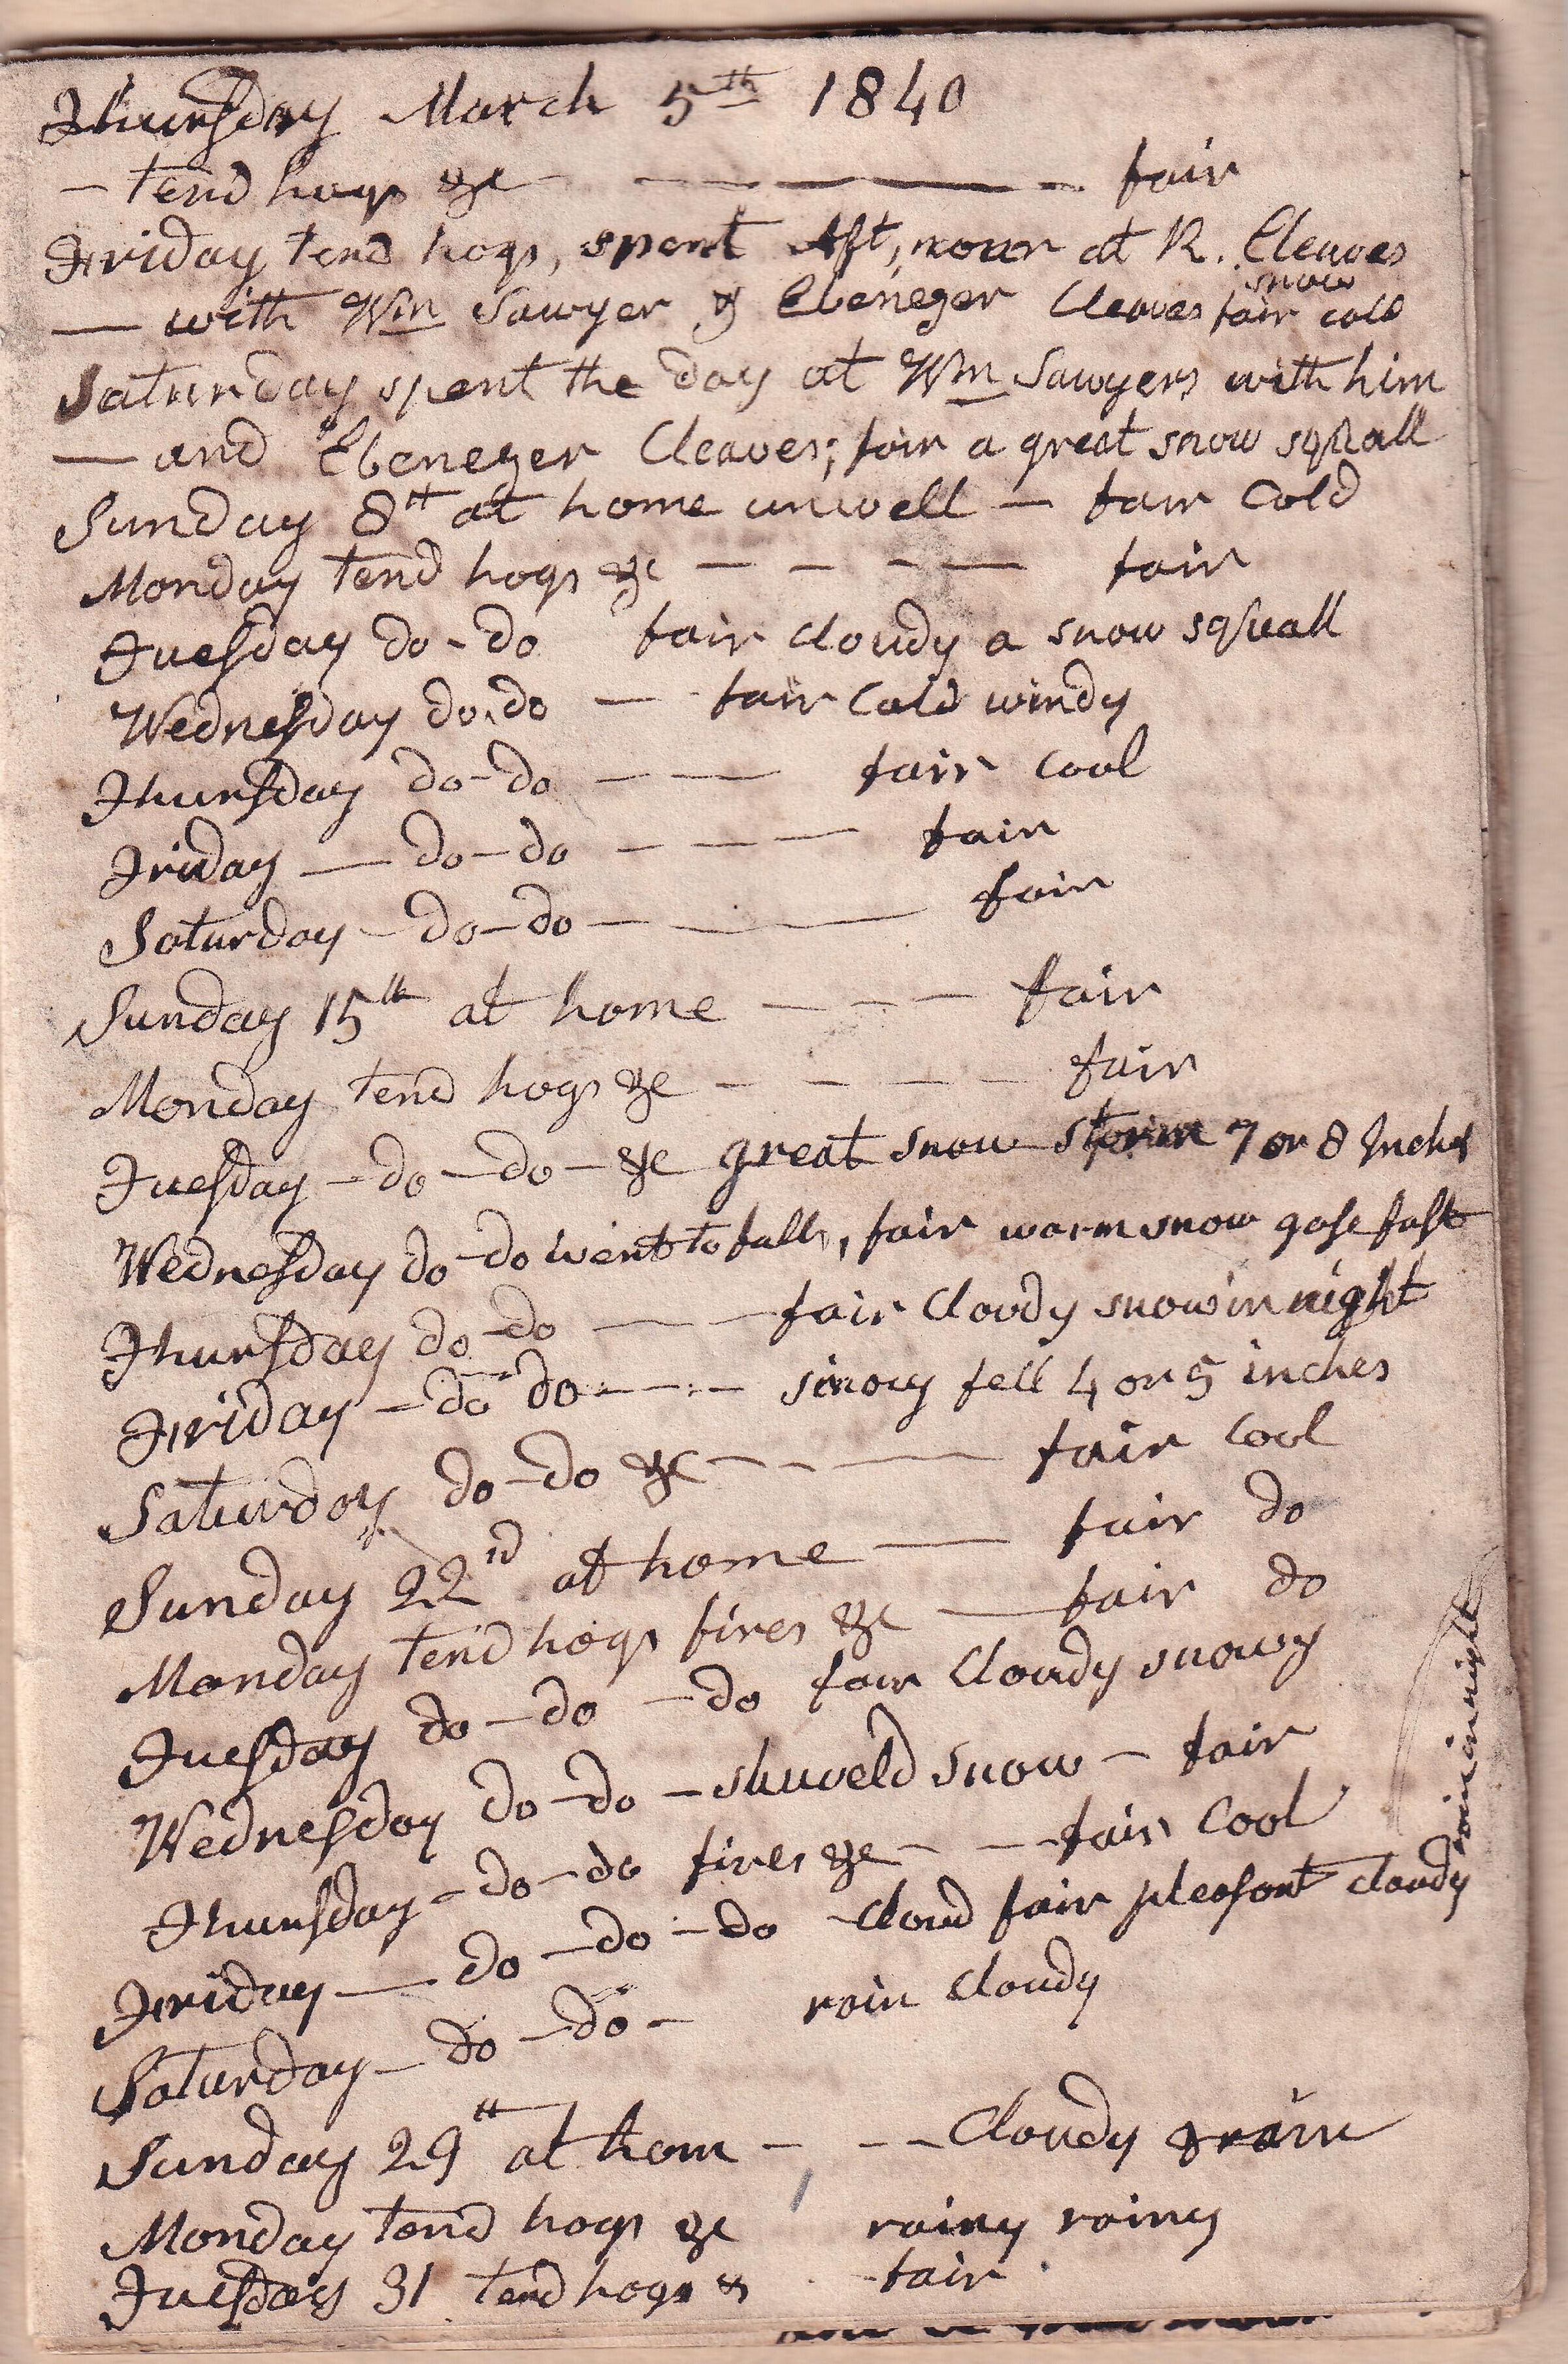 Thursday March 5th 1840
— tend hogs &c — — — fair
Friday tend hogs, spent Aft,noon at R. Cleaves
snow
— with Wm Sawyer & Ebenezer Cleaves fair cold
Saturday spent the day at Wm Sawyers with him
— and Ebenezer Cleaves; fair a great snow squall
Sunday 8th at home unwell — fair Cold
Monday tend hogs &c — — — — fair
Tuesday do - do fair cloudy a snow squall
Wednesday do. do — fair Cold windy
Thursday do - do — — fair cool
Friday — do - do — — — fair
Saturday - do - do — — — fair
Sunday 15th at home — — — fair
Monday tend hogs &c — — — — fair
Tuesday - do - do - &c great snow storm 7 or 8 Inches
Wednesday do - do went to falls, fair warm snow gose fast
Thursday do - do — — fair Cloudy snow in night
Friday - do do — — snowy fell 4 or 5 inches
Saturday do - do &c — — — fair Cool
Sunday 22nd at home — fair do
Monday tend hogs fires &c — fair do
Tuesday do - do - do fair Cloudy snowy
Wednesday do - do - shuveld snow - fair
Thursday - do - do fires &c - — fair Cool
Friday — do - do - do cloud fair pleasant cloudy
rain in night
Saturday - do - do - rain Cloudy
Sunday 29th at hom - — Cloudy & rain
Monday tend hogs &c rainy rainy
Tuesday 31 tend hogs & - fair